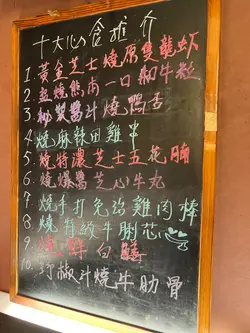 十大心食推介
1. 黃金芝士燒原隻龍蝦
2. 盐燒熊南一口和牛粒
3. 秘製醬汁燒鴨舌
4. 燒麻辣田雞串
5. 燒特濃芝士五花腩
6. 燒爆醬芝心牛丸
7. 燒手打免治雞肉棒
8. 燒背紋牛脷芯
9. 燒 白鱔
10. 椒汁燒牛肋骨